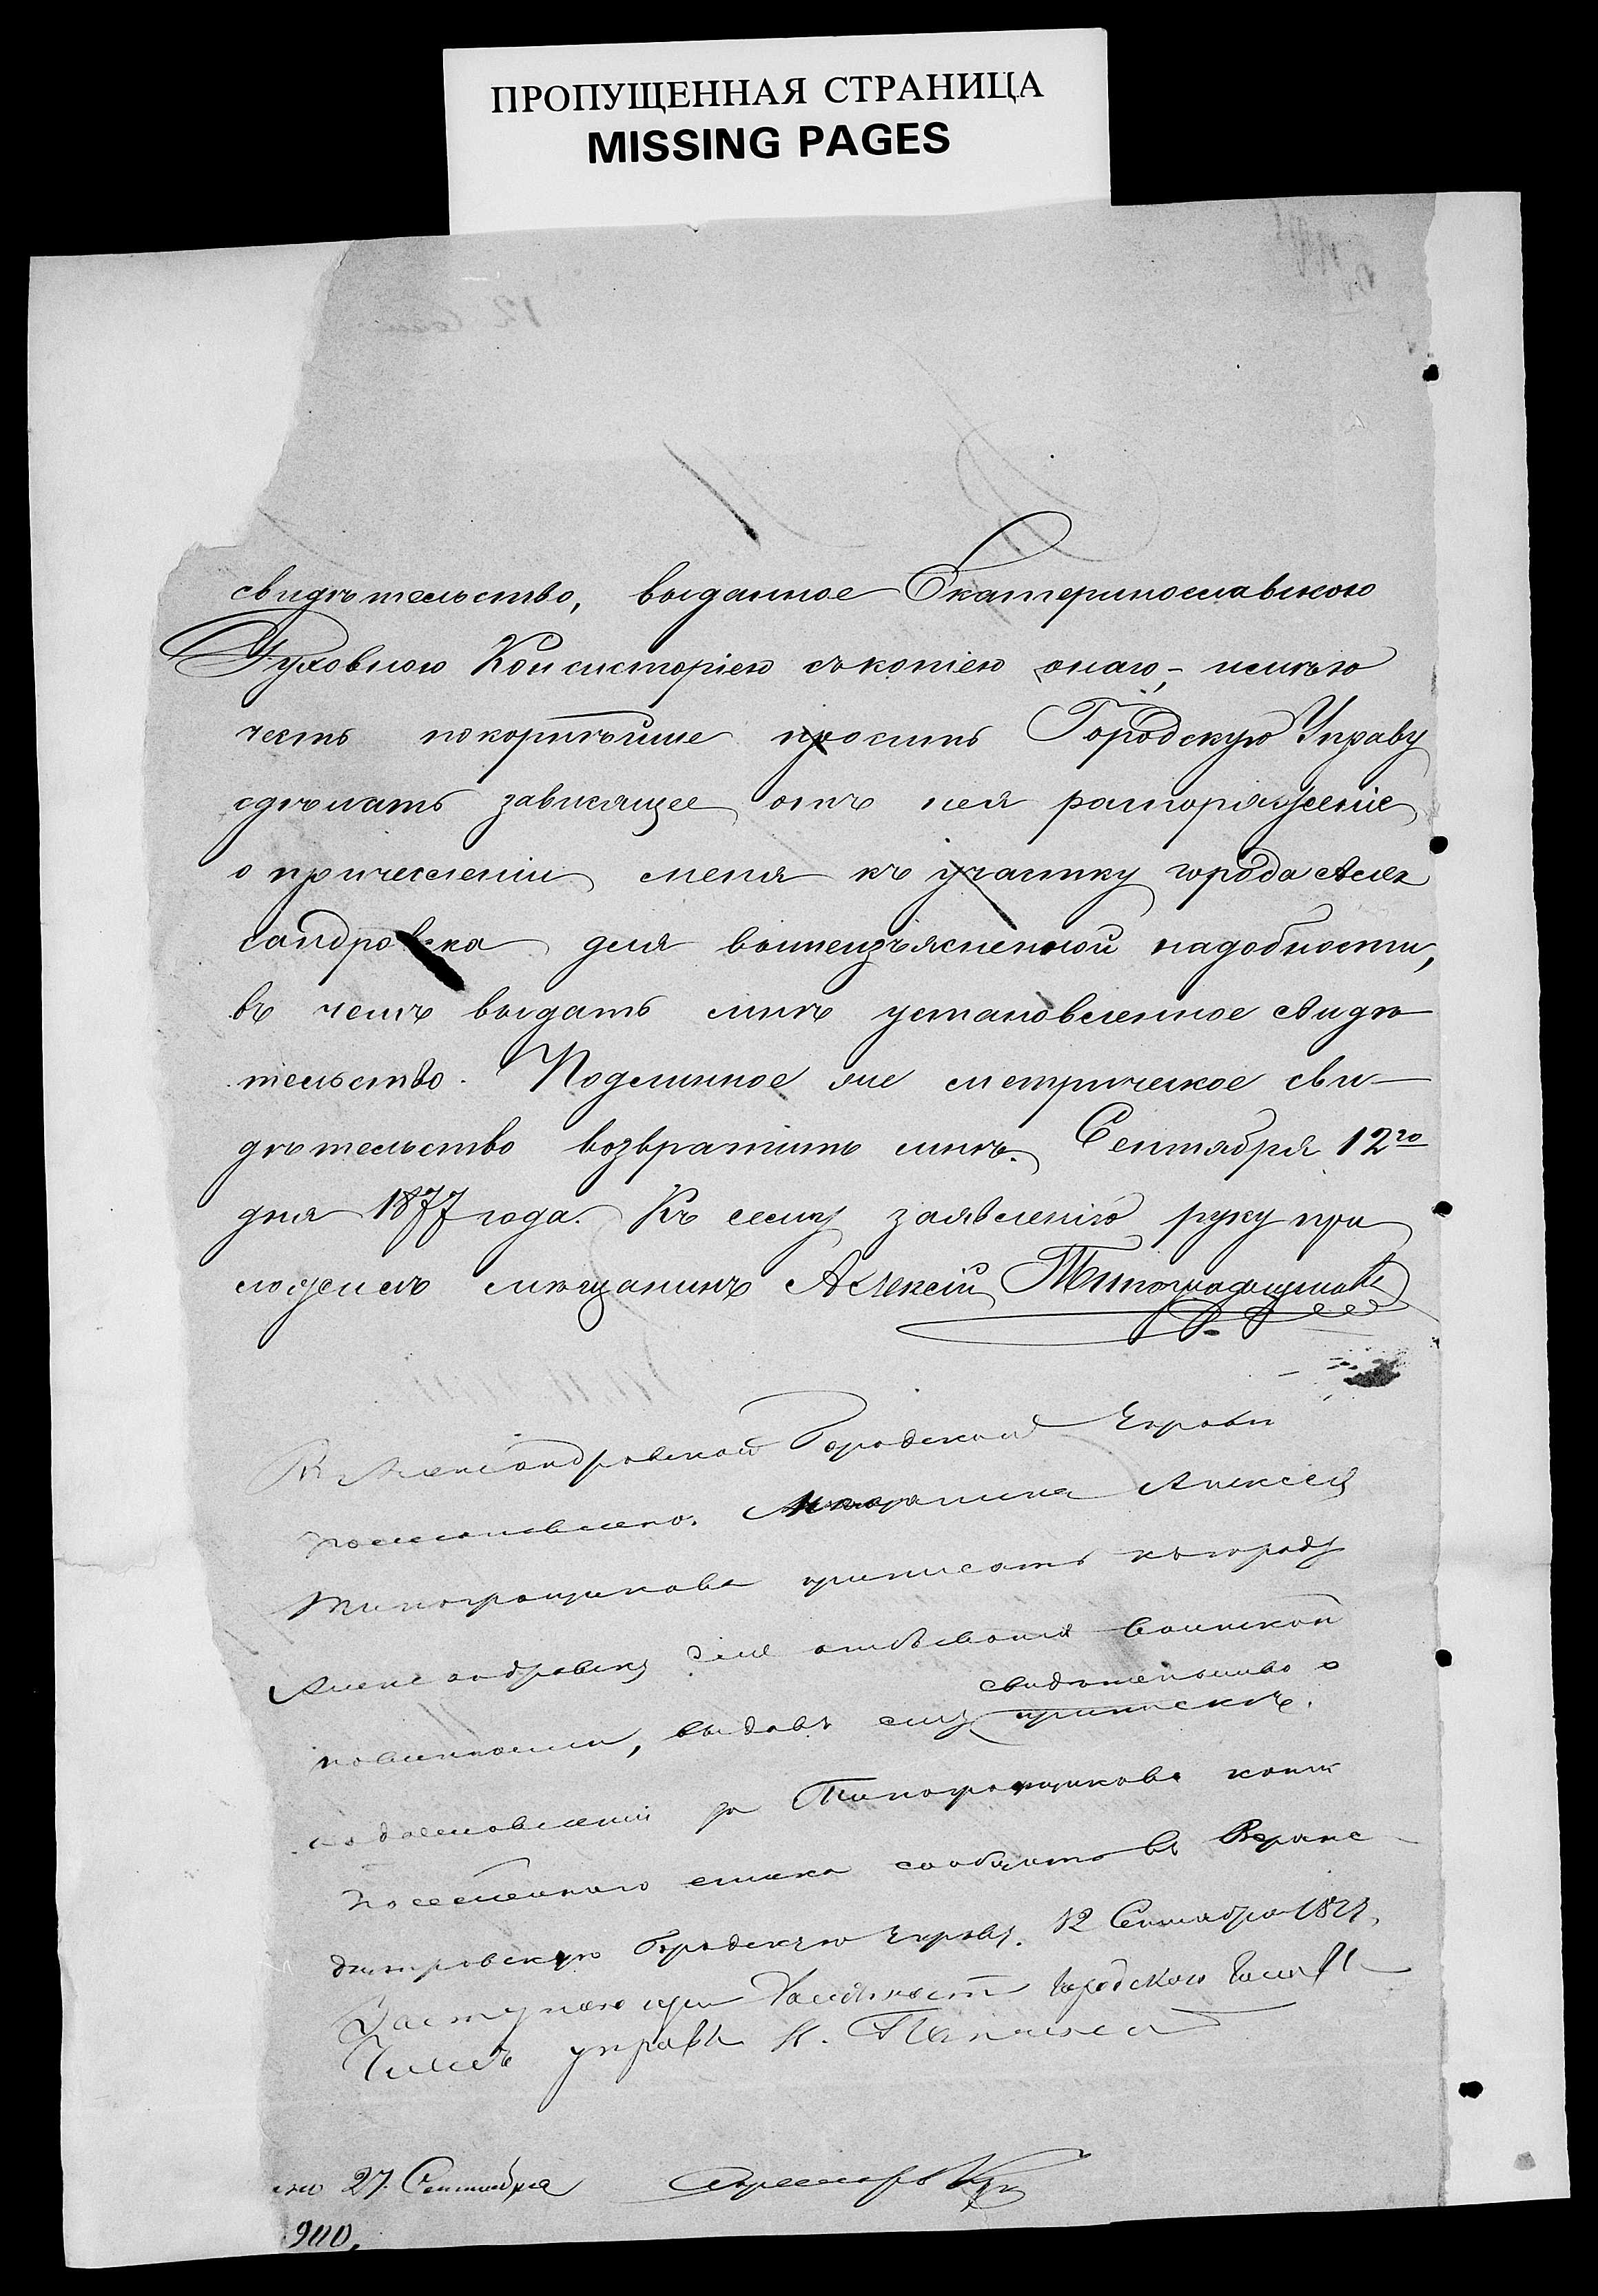 ПРОПУЩЕННАЯ СТРАНИЦА
MISSING PAGES
свидѣтельство, выданное Екатеринославскою
Духовною Консисторіею съ копіею онаго, имѣю
честь покорнѣйше просить Городскую Управу
сдѣлать зависящее отъ нея распоряженіе
о причисленіи меня къ участку города Алек
сандровска для вышеизъясненной надобности,
въ чемъ выдать мнѣ установленное свидѣ
тельство. Подлинное же метрическое сви-
дѣтельство возвратить мнѣ. Сентября 12го
дня 1877 года. Къ сему заявленію руку при
ложилъ мѣщанинъ Алексѣй
Въ Александровской Городской Управѣ
постановлено: Мѣщанина Алексея
приписать къ городу
Александровску для отбыванія воинской
свидѣтельство о
повинности, выдавъ ему припискѣ.
посемейнаго списка сообщить въ
Городскую Управу. 12 Сентября 1877.
Заступающій Городского Головы
Членъ управы
27 Сентября
900.